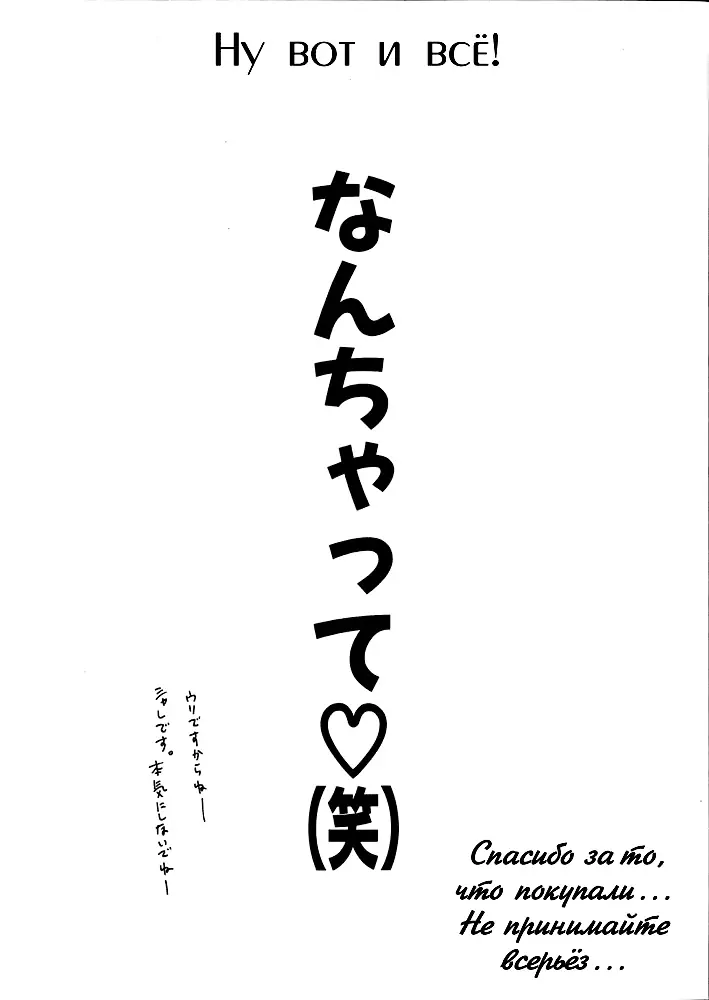 Ну вот и всё!
なんちゃって♡(笑)
ウリですからねー
シャレです。本気にしないでねー
Спасибо за то,
что покупали...
Не принимайте
всерьёз...